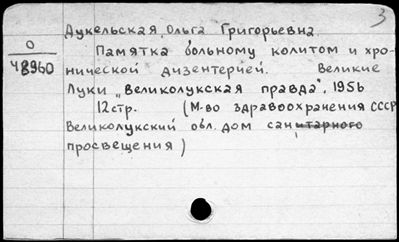 3
Дукельская, Ольга Григорьевна.
О
48960
Памятка больному колитом и хро-
нической дизентерией. Великие
Луки „Великолукская правда", 1956
12стр. (М-во здравоохранения СССР
Великолукский обл. дом санитарного
просвещения)